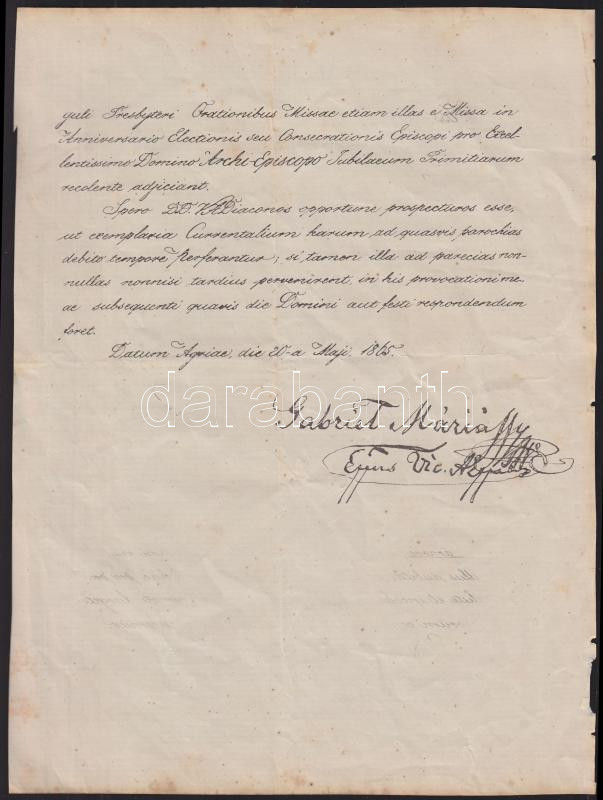 guli Presbyteri Orationibus Missae etiam illas e Missa in
Anniversario Electionis seu Consecrationis Episcopi pro Excel-
lentissimo Domino Archi-Episcopo Jubilaeum Primitiarum
recolente adjiciant.
Spero DD. VADiaconos opportune prospecturos esse,
ut exemplaria Currentalium harum ad quasvis parochias
debito tempore perferantur; si tamen illa ad paroecias non-
nullas nonnisi tardius pervenirent, in his provocationi me-
ae subsequenti quavis die Domini aut festi respondendum
foret.
Datum Agriae, die 20-a Maji. 1865.
darabanth
Gabriel Máriássy
Eppus Vic.